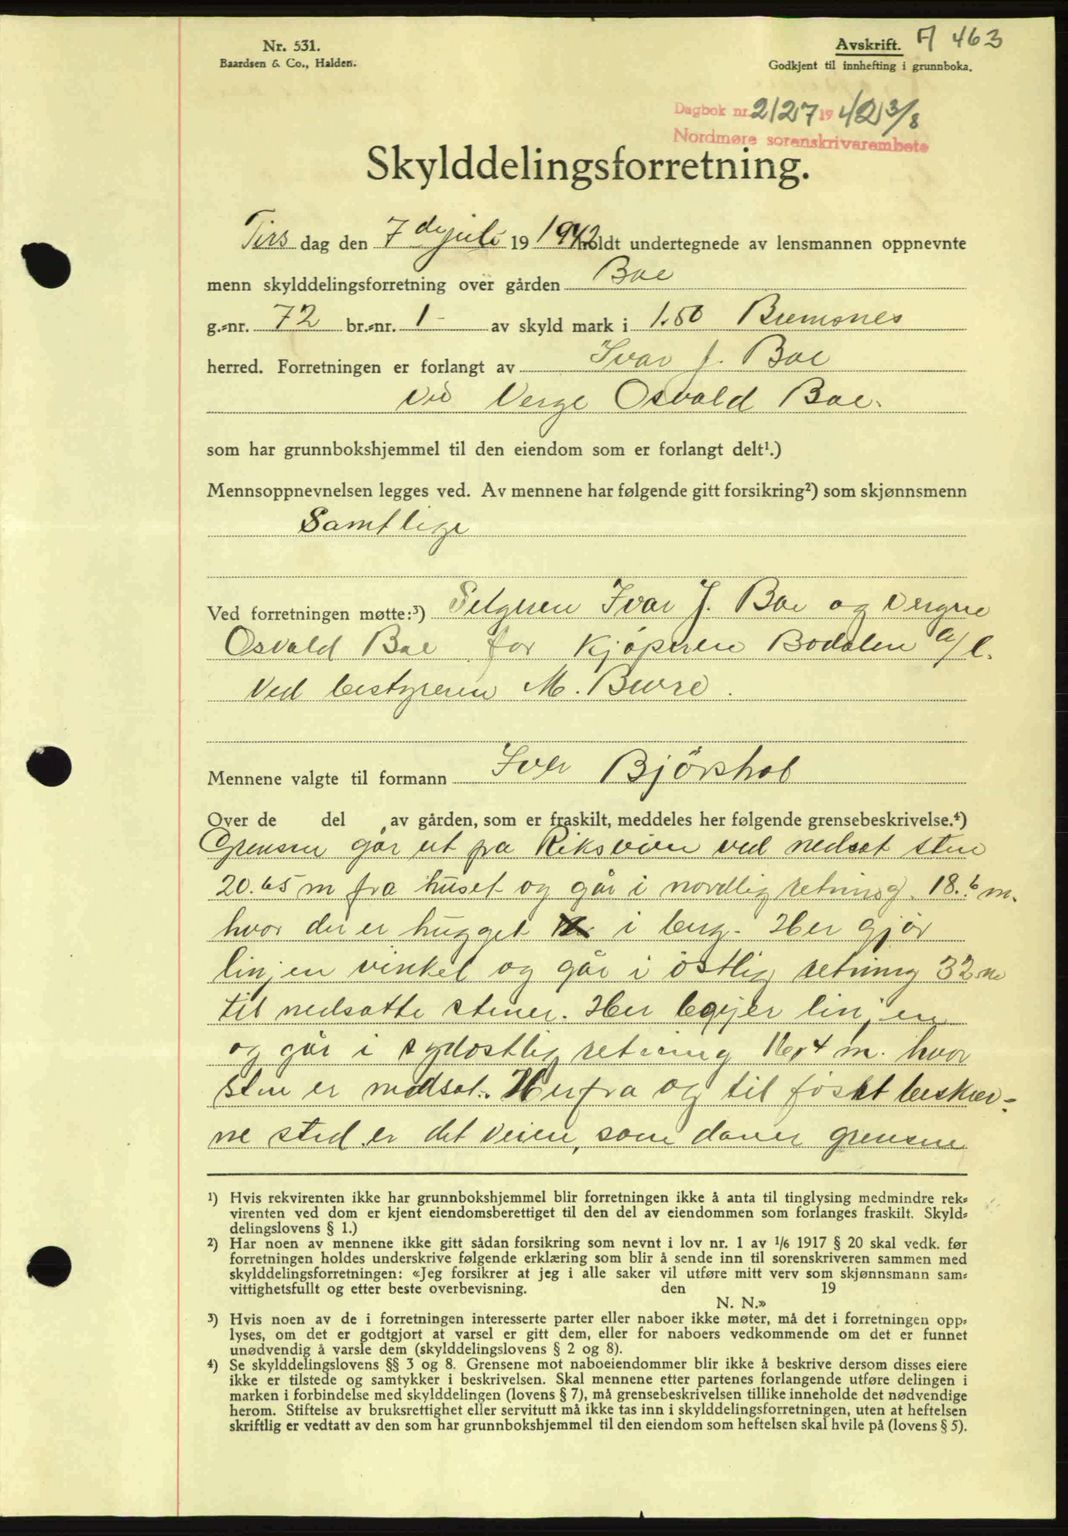 Nr. 531.
Baardsen & Co., Halden.
Avskrift. A 463
Godkjent til innhefting i grunnboka.
Dagbok nr. 2127 19 42 3/8
Nordmøre sorenskrivarembete
Skylddelingsforretning.
Tirs dag den 7 de juli 19 1942 holdt undertegnede av lensmannen oppnevnte
menn skylddelingsforretning over gården Boe
g.-nr. 72 br.-nr. 1 - av skyld mark i 1.50 Bremsnes
herred. Forretningen er forlangt av Ivar J. Boe
ved Verge Osvald Boe.
som har grunnbokshjemmel til den eiendom som er forlangt delt¹.)
Mennsoppnevnelsen legges ved. Av mennene har følgende gitt forsikring²) som skjønnsmenn
Samtlige
Ved forretningen møtte:³) Selgeren Ivar J. Boe og vergne
Osvald Boe for Kjöperen Bodalen a/l.
ved bestyreren M.
Mennene valgte til formann Iver
Over de del av gården, som er fraskilt, meddeles her følgende grensebeskrivelse.⁴)
Grensen går ut fra Riksveien ved nedsat sten
20.65 m fra huset og går i nordlig retning 18.6 m.
hvor der er hugget i berg. Her gjör
linjen vinkel og går i östlig retning 32 m
til nedsatte stener. Her böyer linjen
og går i sydostlig retning 16,4 m. hvor
sten er nedsat. Herfra og til föst beskrev-
ne sted er det veien, som daner grensen
¹) Hvis rekvirenten ikke har grunnbokshjemmel blir forretningen ikke å anta til tinglysing medmindre rek-
virenten ved dom er kjent eiendomsberettiget til den del av eiendommen som forlanges fraskilt. Skyld-
delingslovens § 1.)
²) Har noen av mennene ikke gitt sådan forsikring som nevnt i lov nr. 1 av 1/6 1917 § 20 skal vedk. før
forretningen holdes underskrive følgende erklæring som blir å sende inn til sorenskriveren sammen med
skylddelingsforretningen: «Jeg forsikrer at jeg i alle saker vil utføre mitt verv som skjønnsmann sam-
vittighetsfullt og etter beste overbevisning. den 19
N. N.»
³) Hvis noen av de i forretningen interesserte parter eller naboer ikke møter, må det i forretningen opp-
lyses, om det er godtgjort at varsel er gitt dem, eller for naboers vedkommende om det er funnet
unødvendig å varsle dem (skylddelingslovens § 2 og 8).
⁴) Se skylddelingslovens §§ 3 og 8. Grensene mot naboeiendommer blir ikke å beskrive dersom disses eiere
ikke er tilstede og samtykker i beskrivelsen. Skal mennene etter partenes forlangende utføre delingen i
marken i forbindelse med skylddelingen (lovens § 7), må grensebeskrivelsen tillike inneholde det nødvendige
herom. Stiftelse av bruksrettighet eller servitutt må ikke tas inn i skylddelingsforretningen, uten at heftelsen
skriftlig er vedtatt av den som har grunnbokshjemmel til den eiendom som heftelsen skal hvile på (lovens § 5).